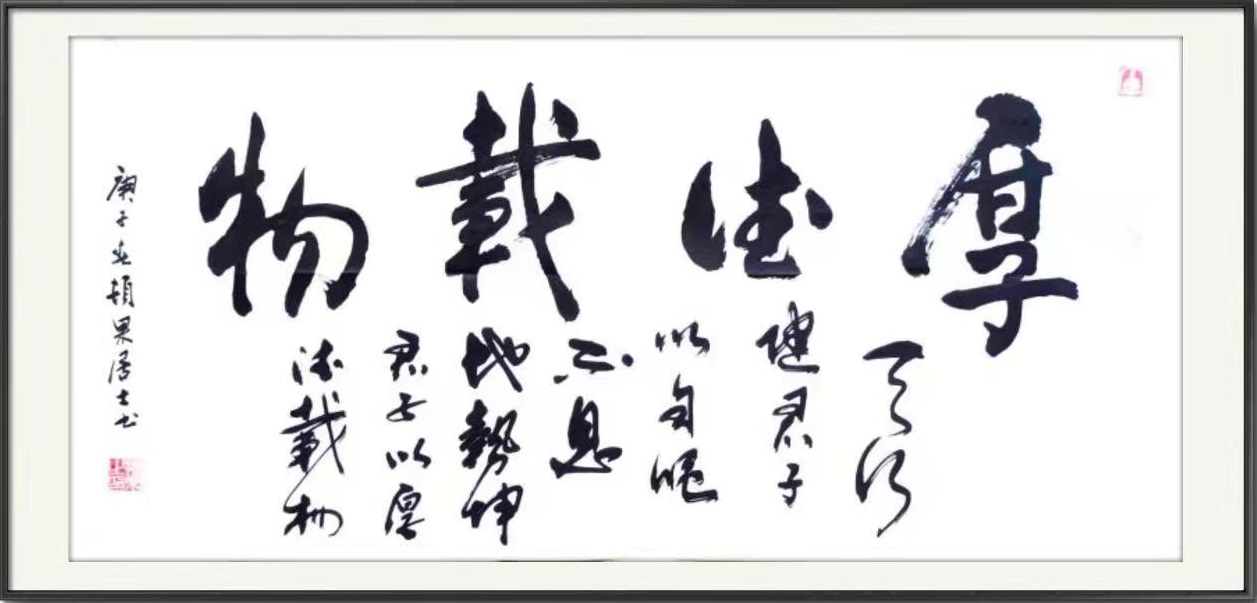 厚德載物
天行
健君子
以自強
不息
地勢坤
君子以厚
德載物
庚子春頓果居士书